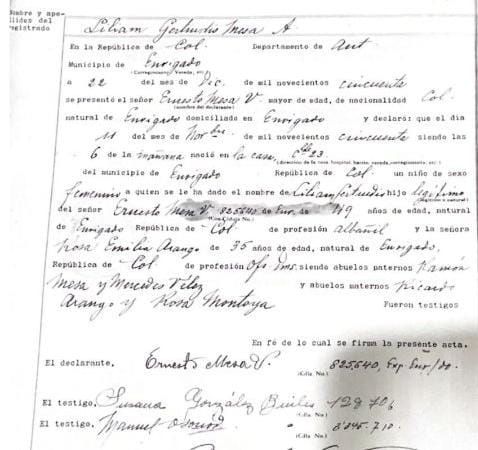 Nombre y ape-
llidos del
registrado
Lilvam Gertrudis Mesa A
En la República de Col. Departamento de Ant
Municipio de Envigado
(Corregimiento, Vereda, etc.)
a 22 del mes de Dic. de mil novecientos cincuenta
se presentó el señor Ernesto Mesa V. mayor de edad, de nacionalidad Col.
(nombre del declarante)
natural de Envigado domiciliado en Envigado y declaró: que el día
11 del mes de Novbre de mil novecientos cincuenta siendo las
6 de la mañana nació en la casa, Clle 23
(dirección de la casa, hospital, barrio, vereda, corregimiento, etc.)
del municipio de Envigado República de Col. un niño de sexo
femenino a quien se le ha dado el nombre de Lilvam Gertrudis hijo legítimo
(legítimo o natural)
del señor Ernesto Mesa V. 825640 de Env. de 49 años de edad, natural
(Con Cédula No.)
de Envigado República de Col. de profesión albañil y la señora
Rosa Emilia Arango de 35 años de edad, natural de Envigado,
República de Col de profesión Ofs Dms. siendo abuelos paternos Ramón
Mesa y Mercedes Vélez y abuelos maternos Ricardo
Arango y Rosa Montoya Fueron testigos
En fé de lo cual se firma la presente acta.
El declarante, Ernesto Mesa V. 825,640, Exp. Env/do.
(Cdla. No.)
El testigo, Susana González 128706
(Cdla. No.)
El testigo, Manuel Osorio " 3'345.710.
(Cdla. No.)